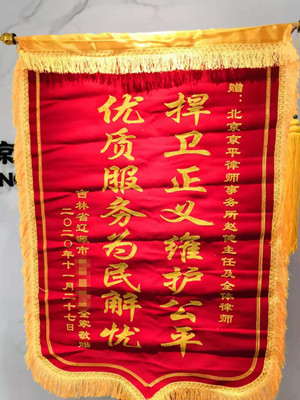 赠：北京京平律师事务所赵健主任及全体律师
捍卫正义维护公平
优质服务为民解忧
吉林省辽源市 全家敬赠
二〇二〇年十一月二十七日
京